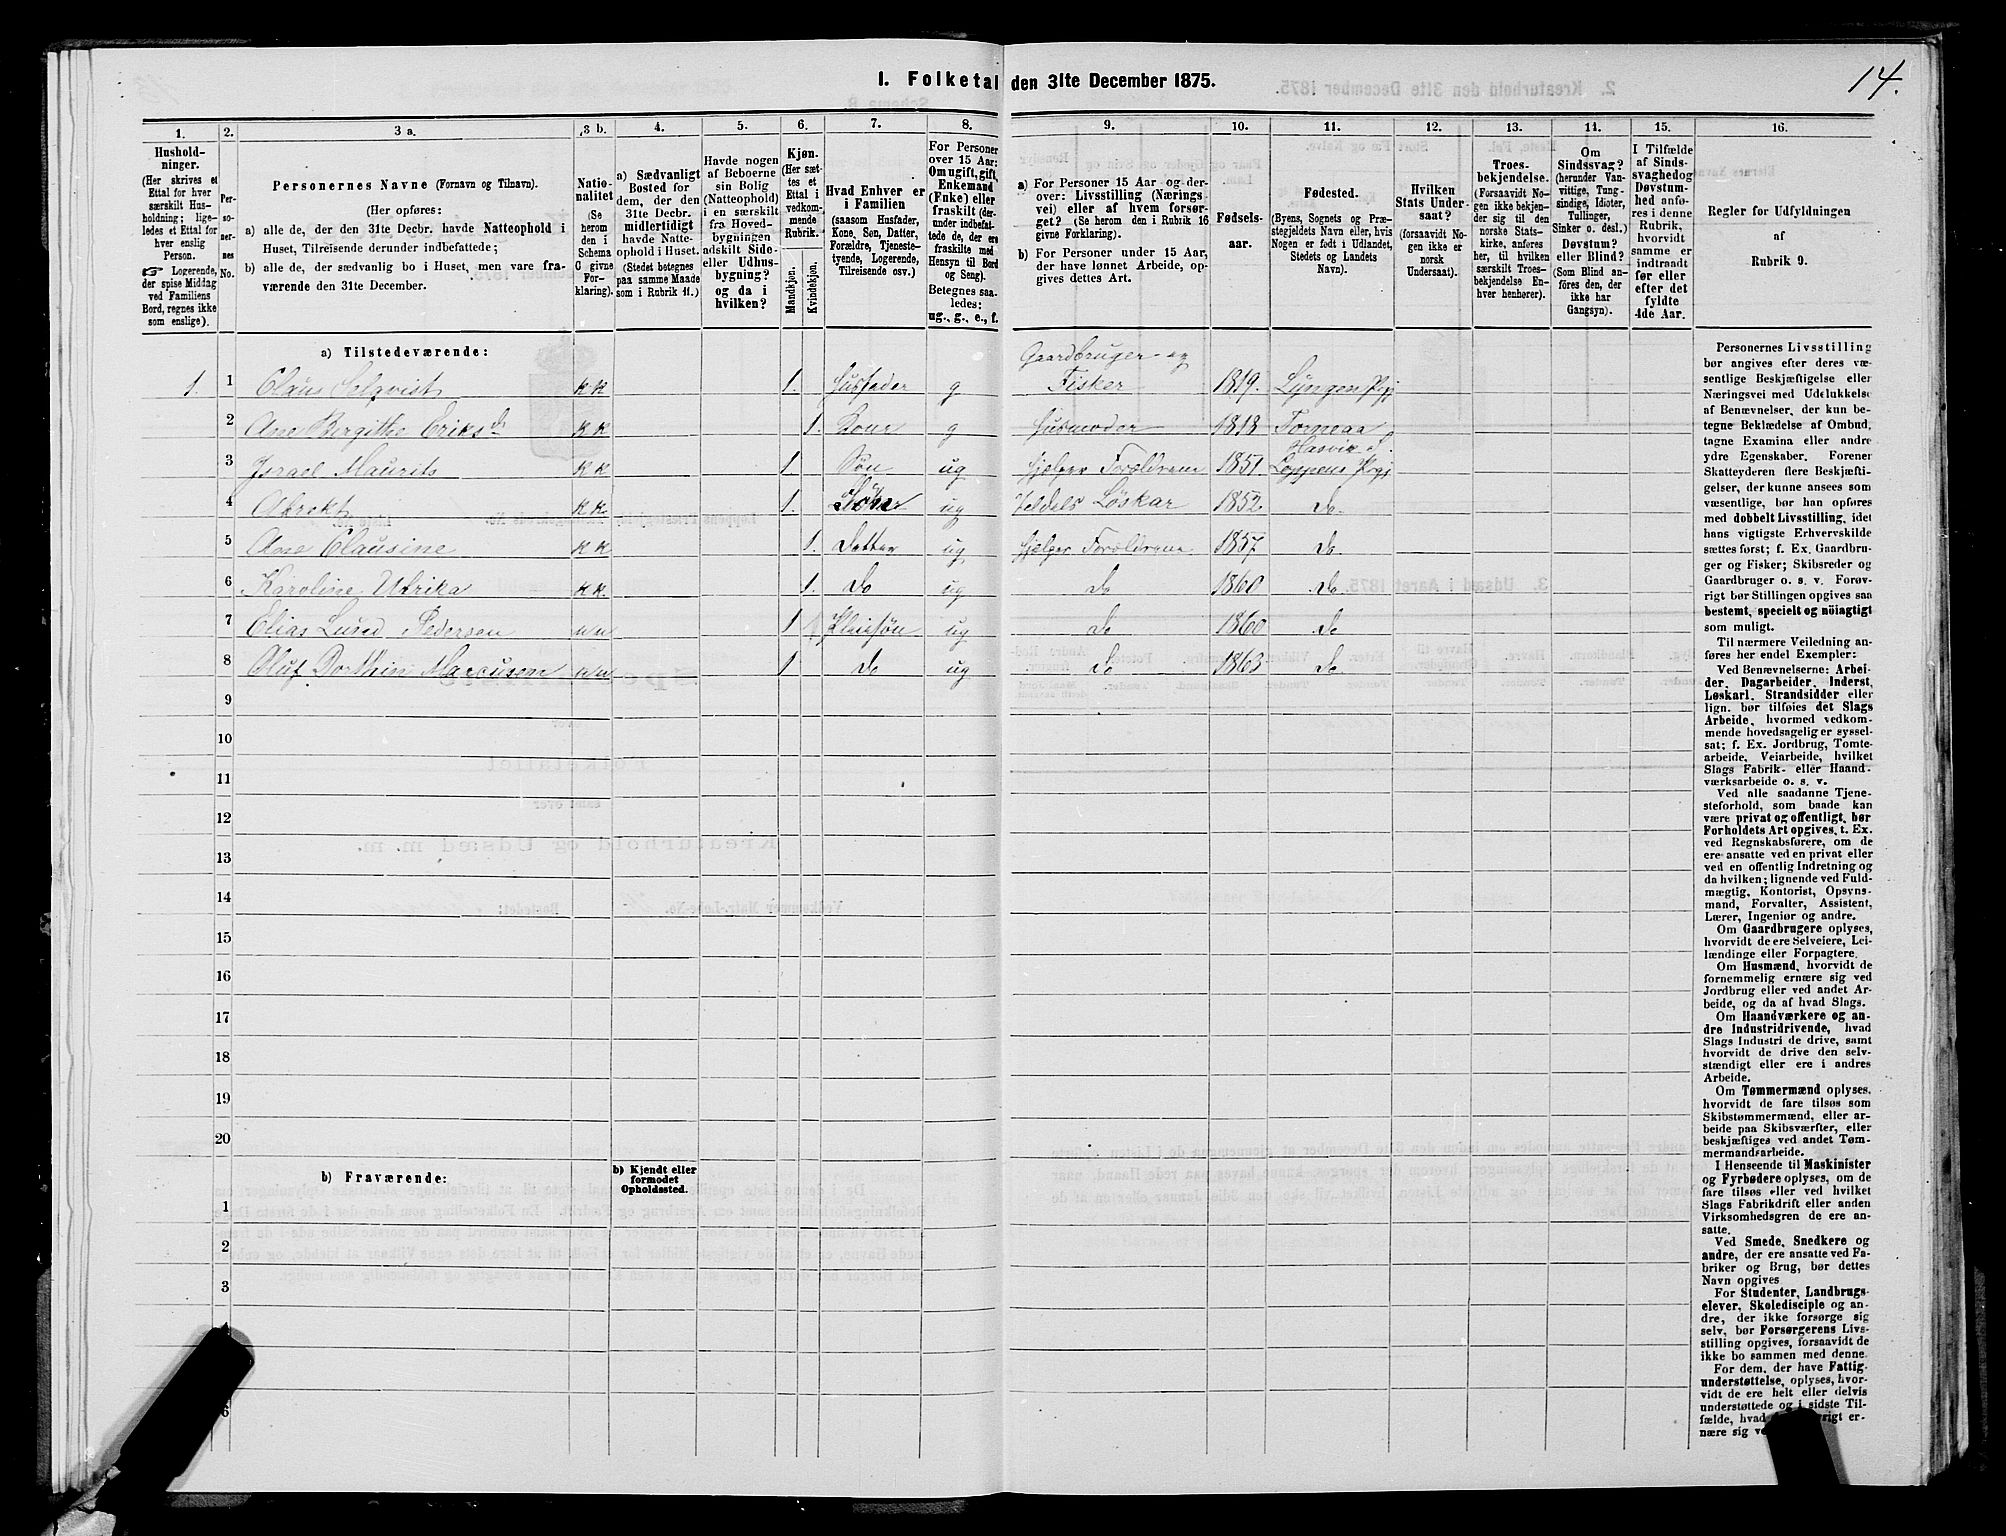 14.
I. Folketal den 31te December 1875.
1. 2. 3 a. 3 b. 4. 5. 6. 7. 8. 9. 10. 11. 12. 13. 14. 15. 16.
Hushold-
ninger.
(Her skrives et
Ettal for hver
særskilt Hus-
holdning; lige-
ledes et Ettal for
hver enslig
Person.
☞ Logerende,
der spise Middag
ved Familiens
Bord, regnes ikke
som enslige).
Per-
so-
ner-
nes
No.
Personernes Navne (Fornavn og Tilnavn).
(Her opføres:
a) alle de, der den 31te Decbr. havde Natteophold i
Huset, Tilreisende derunder indbefattede;
b) alle de, der sædvanlig bo i Huset, men vare fra-
værende den 31te December.
Natio-
nalitet
(Se
herom
den i
Schema
C givne
For-
klaring).
a) Sædvanligt
Bosted for
dem, der den
31te Decbr.
midlertidigt
havde Natte-
ophold i Huset.
(Stedet betegnes
paa samme Maade
som i Rubrik 11.)
Havde nogen
af Beboerne
sin Bolig
(Natteophold)
i en særskilt
fra Hoved-
bygningen
adskilt Side-
eller Udhus-
bygning?
og da i
hvilken?
Kjøn.
(Her sæt-
tes et
Ettal i
vedkom-
mende
Rubrik.
Mandkjøn.
Kvindekjøn.
Hvad Enhver er
i Familien
(saasom Husfader,
Kone, Søn, Datter,
Forældre, Tjeneste-
tyende, Logerende,
Tilreisende osv.)
For Personer
over 15 Aar:
Om ugift, gift,
Enkemand
(Enke) eller
fraskilt (der-
under indbefat-
tede de, der ere
fraskilte med
Hensyn til Bord
og Seng).
Betegnes saa-
ledes:
ug., g., e., f.
a) For Personer 15 Aar og der-
over: Livsstilling (Nærings-
vei) eller af hvem forsør-
get? (Se herom den i Rubrik 16
givne Forklaring).
b) For Personer under 15 Aar,
der have lønnet Arbeide, op-
gives dettes Art.
Fødsels-
aar.
Fødested.
(Byens, Sognets og Præ-
stegjeldets Navn eller, hvis
Nogen er født i Udlandet,
Stedets og Landets
Navn).
Hvilken
Stats Under-
saat?
(forsaavidt No-
gen ikke er
norsk
Undersaat).
Troes-
bekjendelse.
(Forsaavidt No-
gen ikke bekjen-
der sig til den
norske Stats-
kirke, anføres
her, til hvilken
særskilt Troes-
bekjendelse En-
hver henhører).
Om
Sindssvag?
(herunder Van-
vittige, Tung-
sindige, Idioter,
Tullinger,
Sinker o. desl.)
Døvstum?
eller Blind?
(Som Blind an-
føres den, der
ikke har
Gangsyn).
I Tilfælde
af Sinds-
svaghed og
Døvstum-
hed anfø-
res i denne
Rubrik,
hvorvidt
samme er
indtraadt
før eller
efter det
fyldte
4de Aar.
Regler for Udfyldningen
af
Rubrik 9.
a) Tilstedeværende:
Gaardbruger og
1. 1 Claus Selqvist kk 1. Husfader g Fisker 1819. Lyngen Pgj
2 Ane Birgithe Eriksd kk 1. Kone g Husmoder 1818
Hasvik
3 Israel Maurits kk 1. Søn ug Hjelper Forældrene 1851. Loppens Pgj
4 kk 1. ug Løskar 1852 do
5 Ane Clausine kk 1. Datter ug Hjelper Forældrene 1857 do
6 Karoline Ulrika kk 1. do ug do 1860 do
7 Elias Pedersen nn 1 Pleiesøn ug do 1860 do
8 Oluf Marcussen nn 1 do ug do 1863 do
9
10
11
12
13
14
15
16
17
18
19
20
b) Fraværende:
b) Kjendt eller
formodet
Opholdssted.
1
2
3
6
Personernes Livsstilling
bør angives efter deres væ-
sentlige Beskjæftigelse eller
Næringsvei med Udelukkelse
af Benævnelser, der kun be-
tegne Beklædelse af Ombud,
tagne Examina eller andre
ydre Egenskaber. Forener
Skatteyderen flere Beskjæfti-
gelser, der kunne ansees som
væsentlige, bør han opføres
med dobbelt Livsstilling, idet
hans vigtigste Erhvervskilde
sættes først; f. Ex. Gaardbru-
ger og Fisker; Skibsreder og
Gaardbruger o. s. v. Forøv-
rigt bør Stillingen opgives saa
bestemt, specielt og nöiagtigt
som muligt.
Til nærmere Veiledning an-
føres her endel Exempler:
Ved Benævnelserne: Arbei-
der, Dagarbeider, Inderst,
Løskarl, Strandsidder eller
lign. bør tilføies det Slags
Arbeide, hvormed vedkom-
mende hovedsagelig er syssel-
sat; f. Ex. Jordbrug, Tomte-
arbeide, Veiarbeide, hvilket
Slags Fabrik- eller Haand-
værksarbeide o. s. v.
Ved alle saadanne Tjene-
steforhold, som baade kan
være privat og offentligt, bør
Forholdets Art opgives, t. Ex.
ved Regnskabsførere, om de
ere ansatte ved en privat eller
ved en offentlig Indretning og
da hvilken; lignende ved Fuld-
mægtig, Kontorist, Opsyns-
mand, Forvalter, Assistent,
Lærer, Ingeniør og andre.
Om Gaardbrugere oplyses,
hvorvidt de ere Selveiere, Lei-
lændinge eller Forpagtere.
Om Husmænd, hvorvidt de
fornemmelig ernære sig ved
Jordbrug eller ved andet Ar-
beide, og da af hvad Slags.
Om Haandværkere og an-
dre Industridrivende, hvad
Slags Industri de drive, samt
hvorvidt de drive den selv-
stændigt eller ere i andres
Arbeide.
Om Tømmermænd oplyses,
hvorvidt de fare tilsøs som
Skibstømmermænd, eller ar-
beide paa Skibsværfter, eller
beskjæftiges ved andet Tøm-
mermandsarbeide.
I Henseende til Maskinister
og Fyrbødere oplyses, om de
fare tilsøs eller ved hvilket
Slags Fabrikdrift eller anden
Virksomhedsgren de ere an-
satte.
Ved Smede, Snedkere og
andre, der ere ansatte ved Fa-
briker og Brug, bør dettes
Navn opgives
For Studenter, Landbrugs-
elever, Skoledisciple og an-
dre, der ikke forsørge sig
selv, bør Forsørgerens Livs-
stilling opgives, forsaavidt de
ikke bo sammen med denne
For dem, der have Fattig-
understøttelse, oplyses, hvor-
vidt de ere helt eller delvis
understøttede og i sidste Til-
fælde, hvad
nære sig